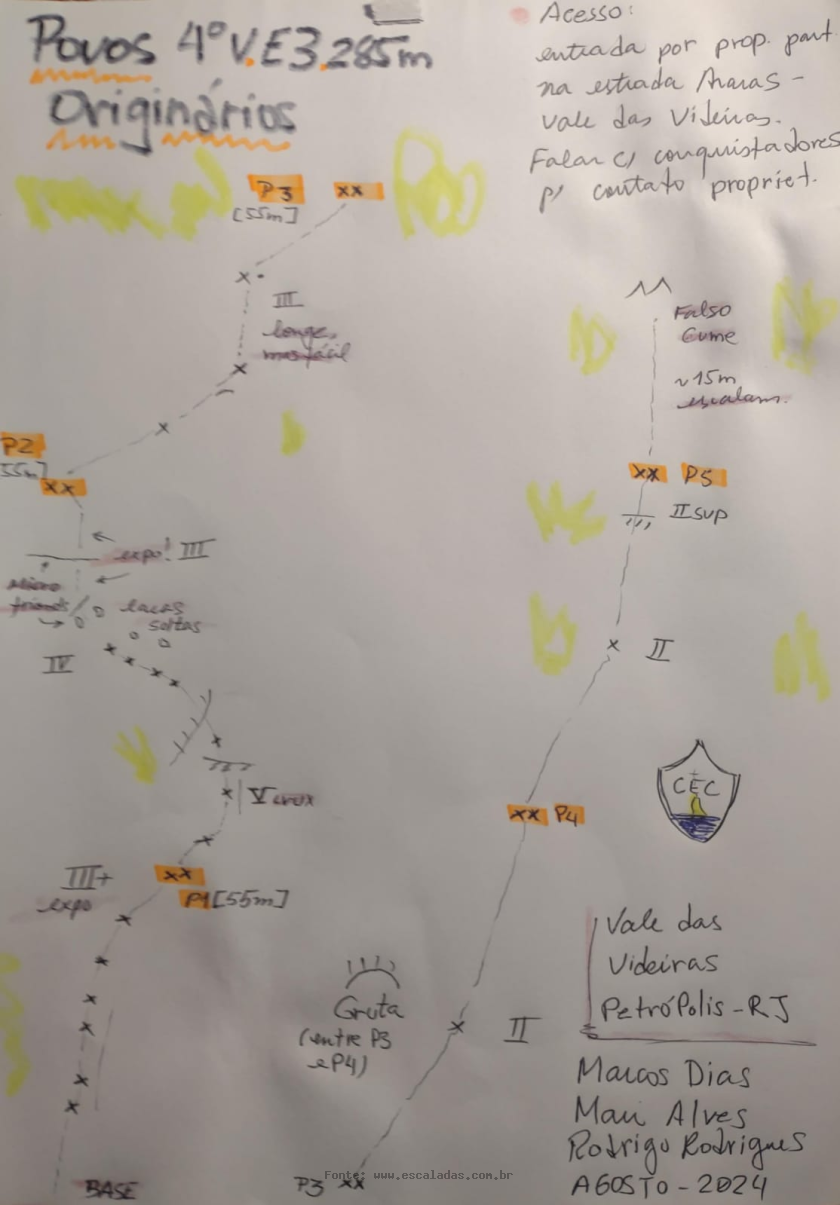 Povos 4º V.E3.285m
Originários
Acesso:
entrada por prop. part.
na estrada Araras -
Vale das Videiras.
Falar c/ conquistadores
p/ contato propriet.
P3 xx
[55m]
III
longe,
mas fácil
P2
55m]
xx
expo! III
Micro
friends
lacas
soltas
IV
V crux
III+
expo
xx
P1 [55m]
BASE
Falso
Cume
~15m
escalam.
xx P5
II SUP
II
xx P4
CEC
Gruta
(entre P3
e P4)
II
P3 xx
Vale das
Videiras
Petrópolis - RJ
Marcos Dias
Mari Alves
Rodrigo Rodrigues
AGOSTO - 2024
Fonte: www.escaladas.com.br